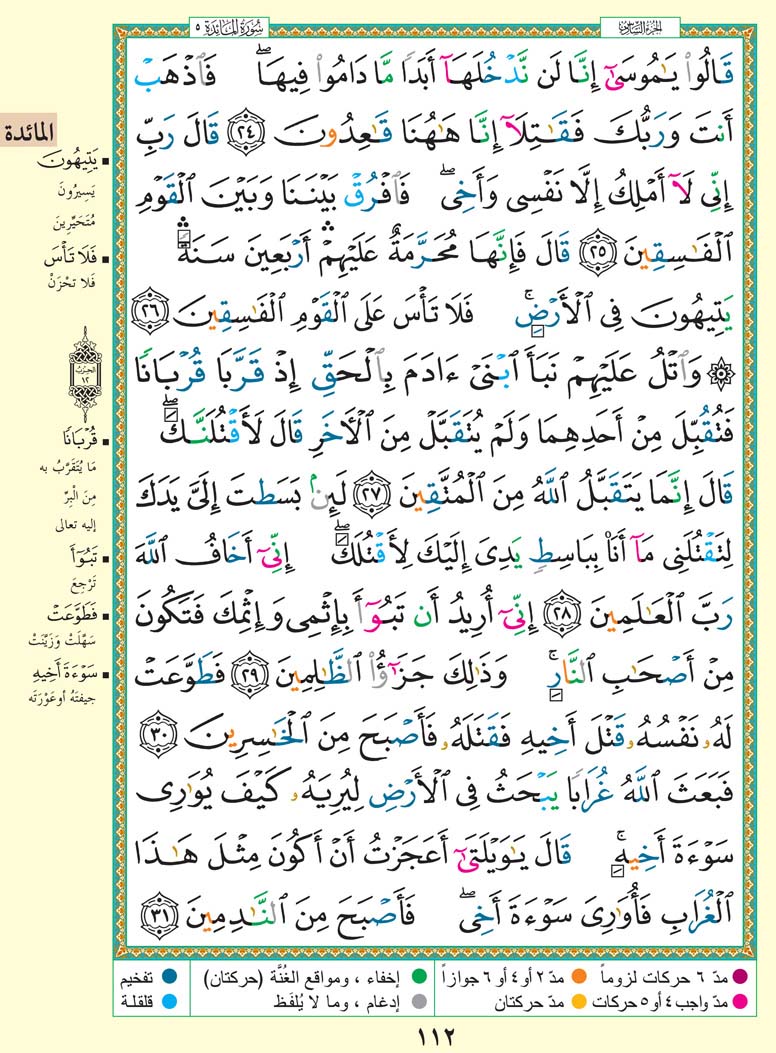 سُورَةُ المَائِدَة ٥
الجزء السادس
قَالُوا۟ يَـٰمُوسَىٰٓ إِنَّا لَن نَّدْخُلَهَآ أَبَدًۭا مَّا دَامُوا۟ فِيهَا ۖ فَٱذْهَبْ
أَنتَ وَرَبُّكَ فَقَـٰتِلَآ إِنَّا هَـٰهُنَا قَـٰعِدُونَ ٢٤ قَالَ رَبِّ
إِنِّى لَآ أَمْلِكُ إِلَّا نَفْسِى وَأَخِى ۖ فَٱفْرُقْ بَيْنَنَا وَبَيْنَ ٱلْقَوْمِ
ٱلْفَـٰسِقِينَ ٢٥ قَالَ فَإِنَّهَا مُحَرَّمَةٌ عَلَيْهِمْ ۛ أَرْبَعِينَ سَنَةًۭ ۛ
يَتِيهُونَ فِى ٱلْأَرْضِ ۚ فَلَا تَأْسَ عَلَى ٱلْقَوْمِ ٱلْفَـٰسِقِينَ ٢٦
۞ وَٱتْلُ عَلَيْهِمْ نَبَأَ ٱبْنَىْ ءَادَمَ بِٱلْحَقِّ إِذْ قَرَّبَا قُرْبَانًۭا
فَتُقُبِّلَ مِنْ أَحَدِهِمَا وَلَمْ يُتَقَبَّلْ مِنَ ٱلْـَٔاخَرِ قَالَ لَأَقْتُلَنَّكَ ۖ
قَالَ إِنَّمَا يَتَقَبَّلُ ٱللَّهُ مِنَ ٱلْمُتَّقِينَ ٢٧ لَئِنۢ بَسَطتَ إِلَىَّ يَدَكَ
لِتَقْتُلَنِى مَآ أَنَا۠ بِبَاسِطٍۢ يَدِىَ إِلَيْكَ لِأَقْتُلَكَ ۖ إِنِّىٓ أَخَافُ ٱللَّهَ
رَبَّ ٱلْعَـٰلَمِينَ ٢٨ إِنِّىٓ أُرِيدُ أَن تَبُوٓأَ بِإِثْمِى وَإِثْمِكَ فَتَكُونَ
مِنْ أَصْحَـٰبِ ٱلنَّارِ ۚ وَذَٰلِكَ جَزَٰٓؤُا۟ ٱلظَّـٰلِمِينَ ٢٩ فَطَوَّعَتْ
لَهُۥ نَفْسُهُۥ قَتْلَ أَخِيهِ فَقَتَلَهُۥ فَأَصْبَحَ مِنَ ٱلْخَـٰسِرِينَ ٣٠
فَبَعَثَ ٱللَّهُ غُرَابًۭا يَبْحَثُ فِى ٱلْأَرْضِ لِيُرِيَهُۥ كَيْفَ يُوَٰرِى
سَوْءَةَ أَخِيهِ ۚ قَالَ يَـٰوَيْلَتَىٰٓ أَعَجَزْتُ أَنْ أَكُونَ مِثْلَ هَـٰذَا
ٱلْغُرَابِ فَأُوَٰرِىَ سَوْءَةَ أَخِى ۖ فَأَصْبَحَ مِنَ ٱلنَّـٰدِمِينَ ٣١
المائدة
يَتِيهُونَ
يَسِيرُونَ
مُتَحَيِّرِينَ
فَلَا تَأْسَ
فَلا تحْزَنْ
الحزب
١٢
قُرْبَانًا
مَا يُتَقَرَّبُ به
مِنَ الْبِرِّ
إليه تعالى
تَبُوٓأَ
تَرْجِعَ
فَطَوَّعَتْ
سَهَّلَتْ وَزَيَّنَتْ
سَوْءَةَ أَخِيهِ
جيفتَهُ أو عَوْرَتَه
مدّ ٦ حركات لزوماً مدّ ٢ أو ٤ أو ٦ جوازاً إخفاء ، ومواقع الغُنَّة (حركتان) تفخيم
مدّ واجب ٤ أو ٥ حركات مدّ حركتان إدغام ، وما لا يُلفَظ قلقلة
١١٢